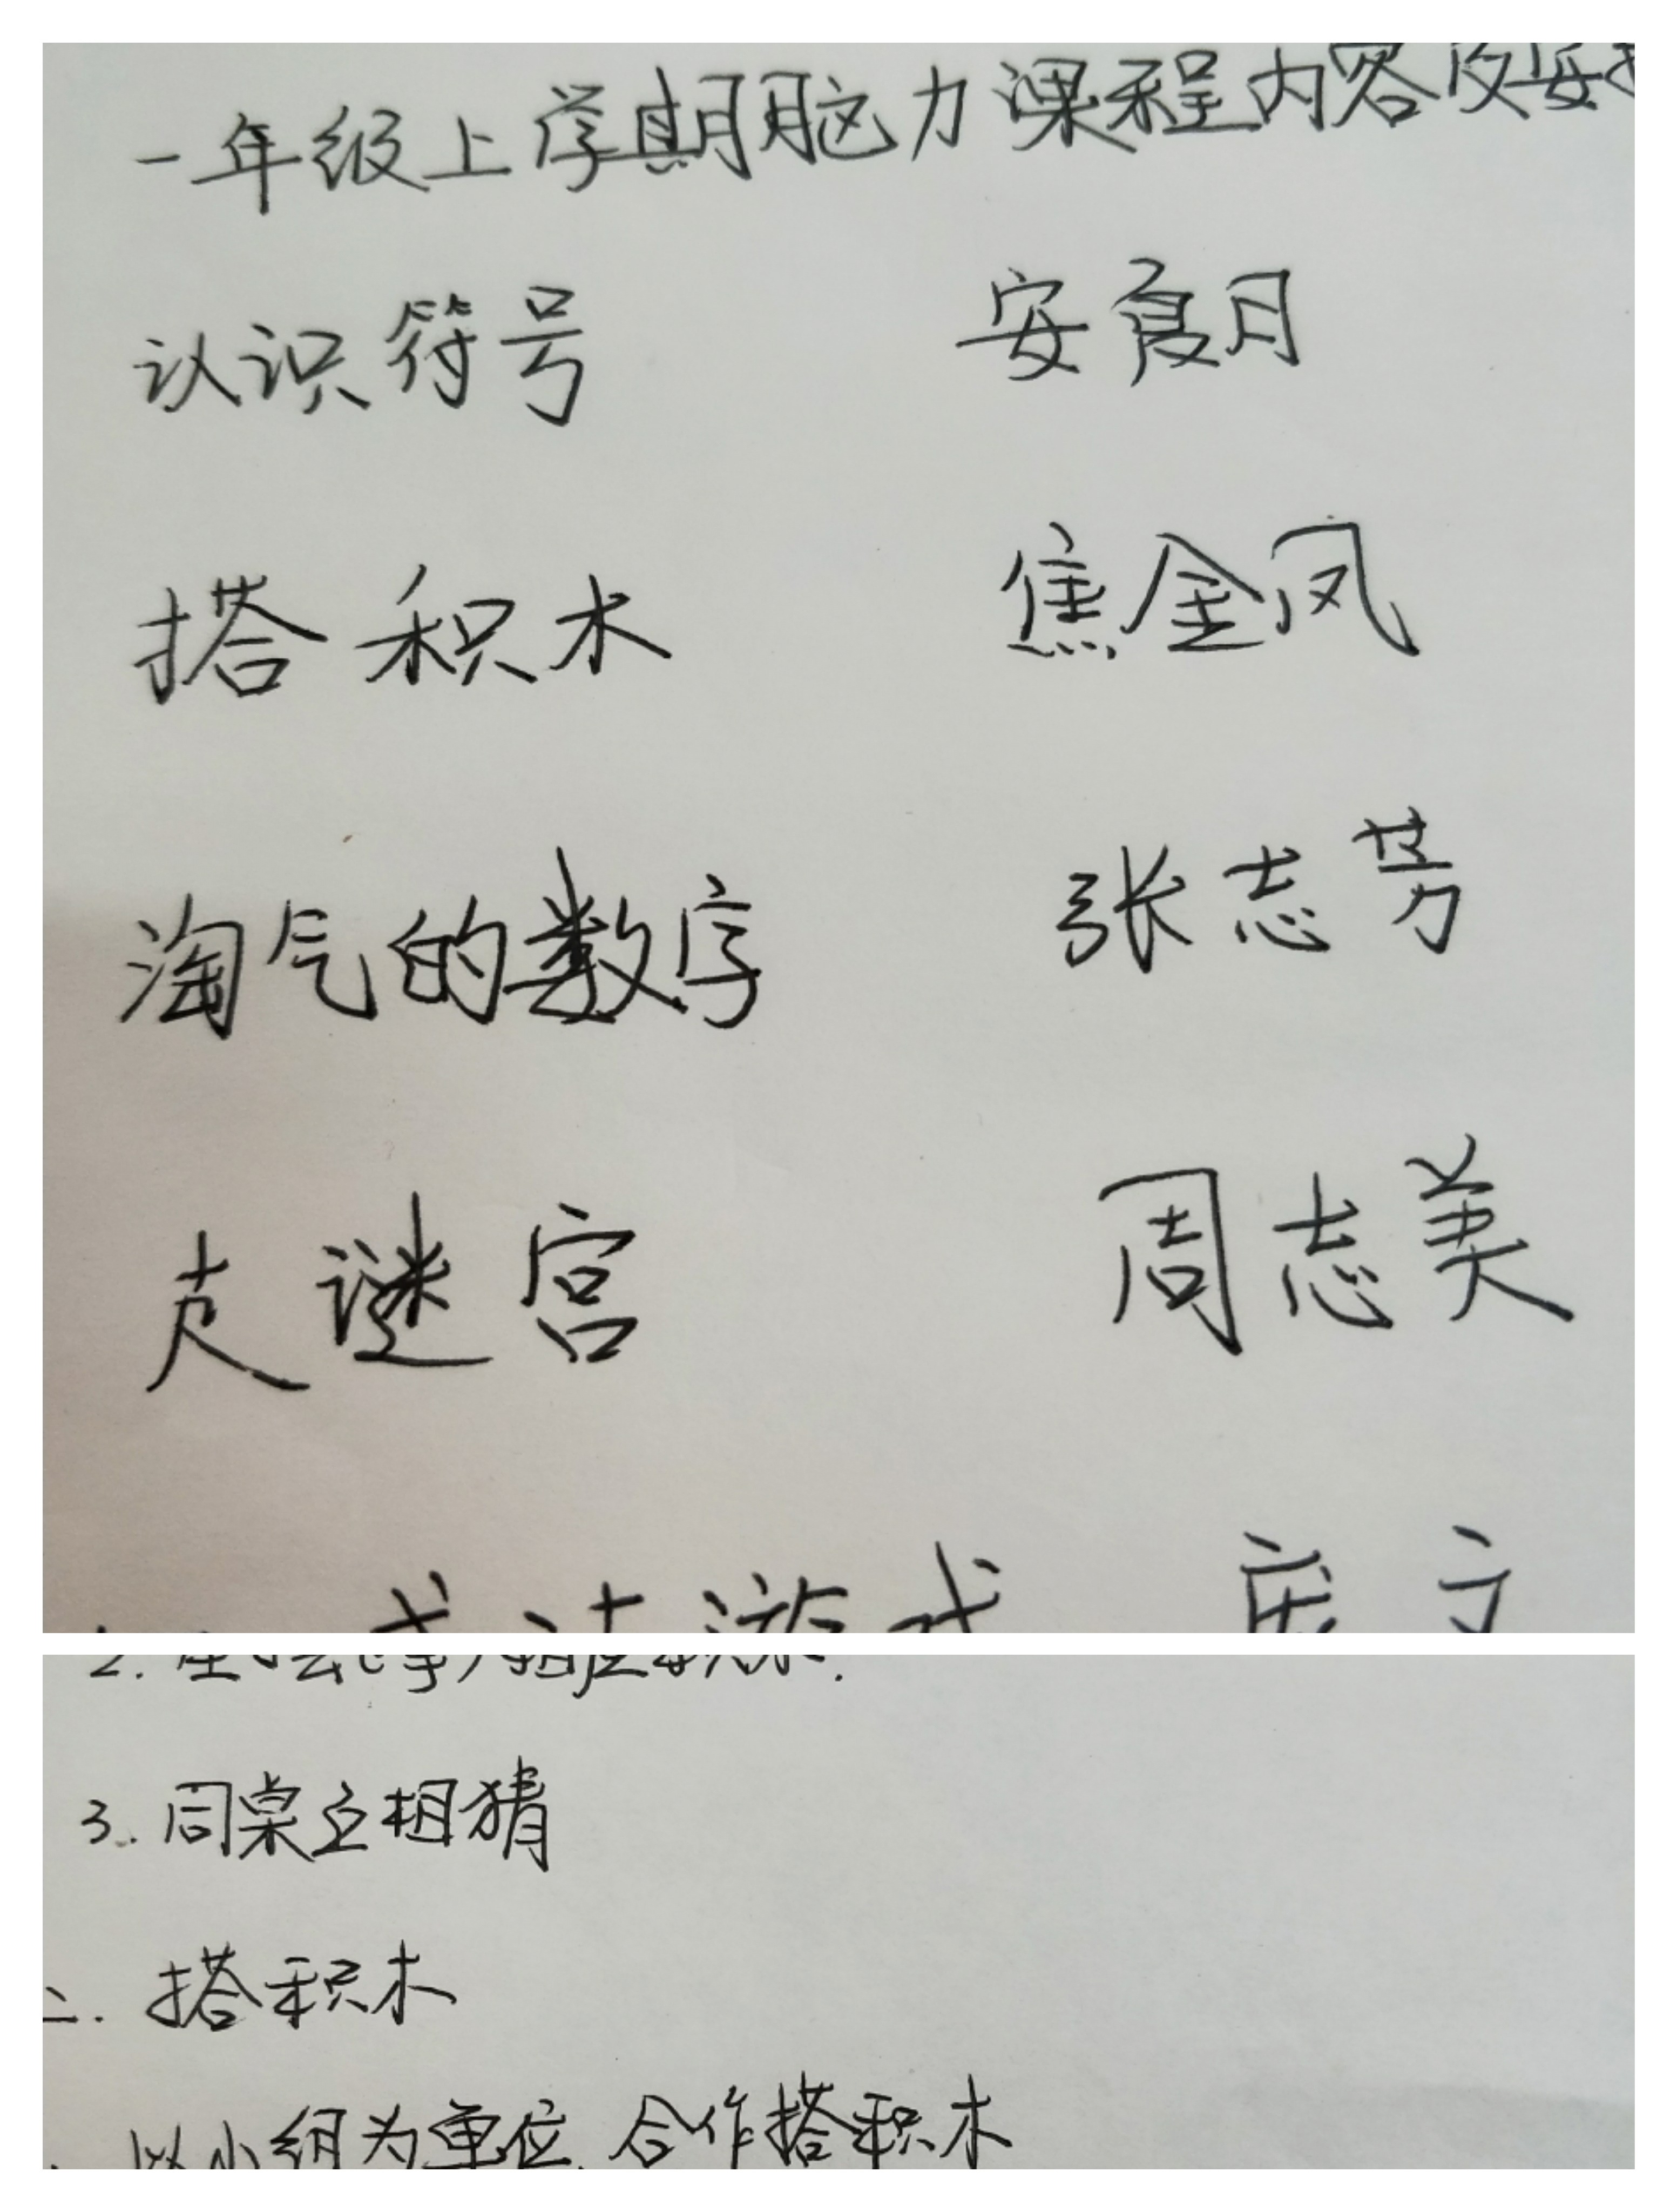 一年级上学期脑力课程内容及安
认识符号 安夏日
搭积木 焦金凤
淘气的数字 张志芳
走谜宫 周志美
游戏
2.
3. 同桌互相猜
二. 搭积木
以小组为单位, 合作搭积木